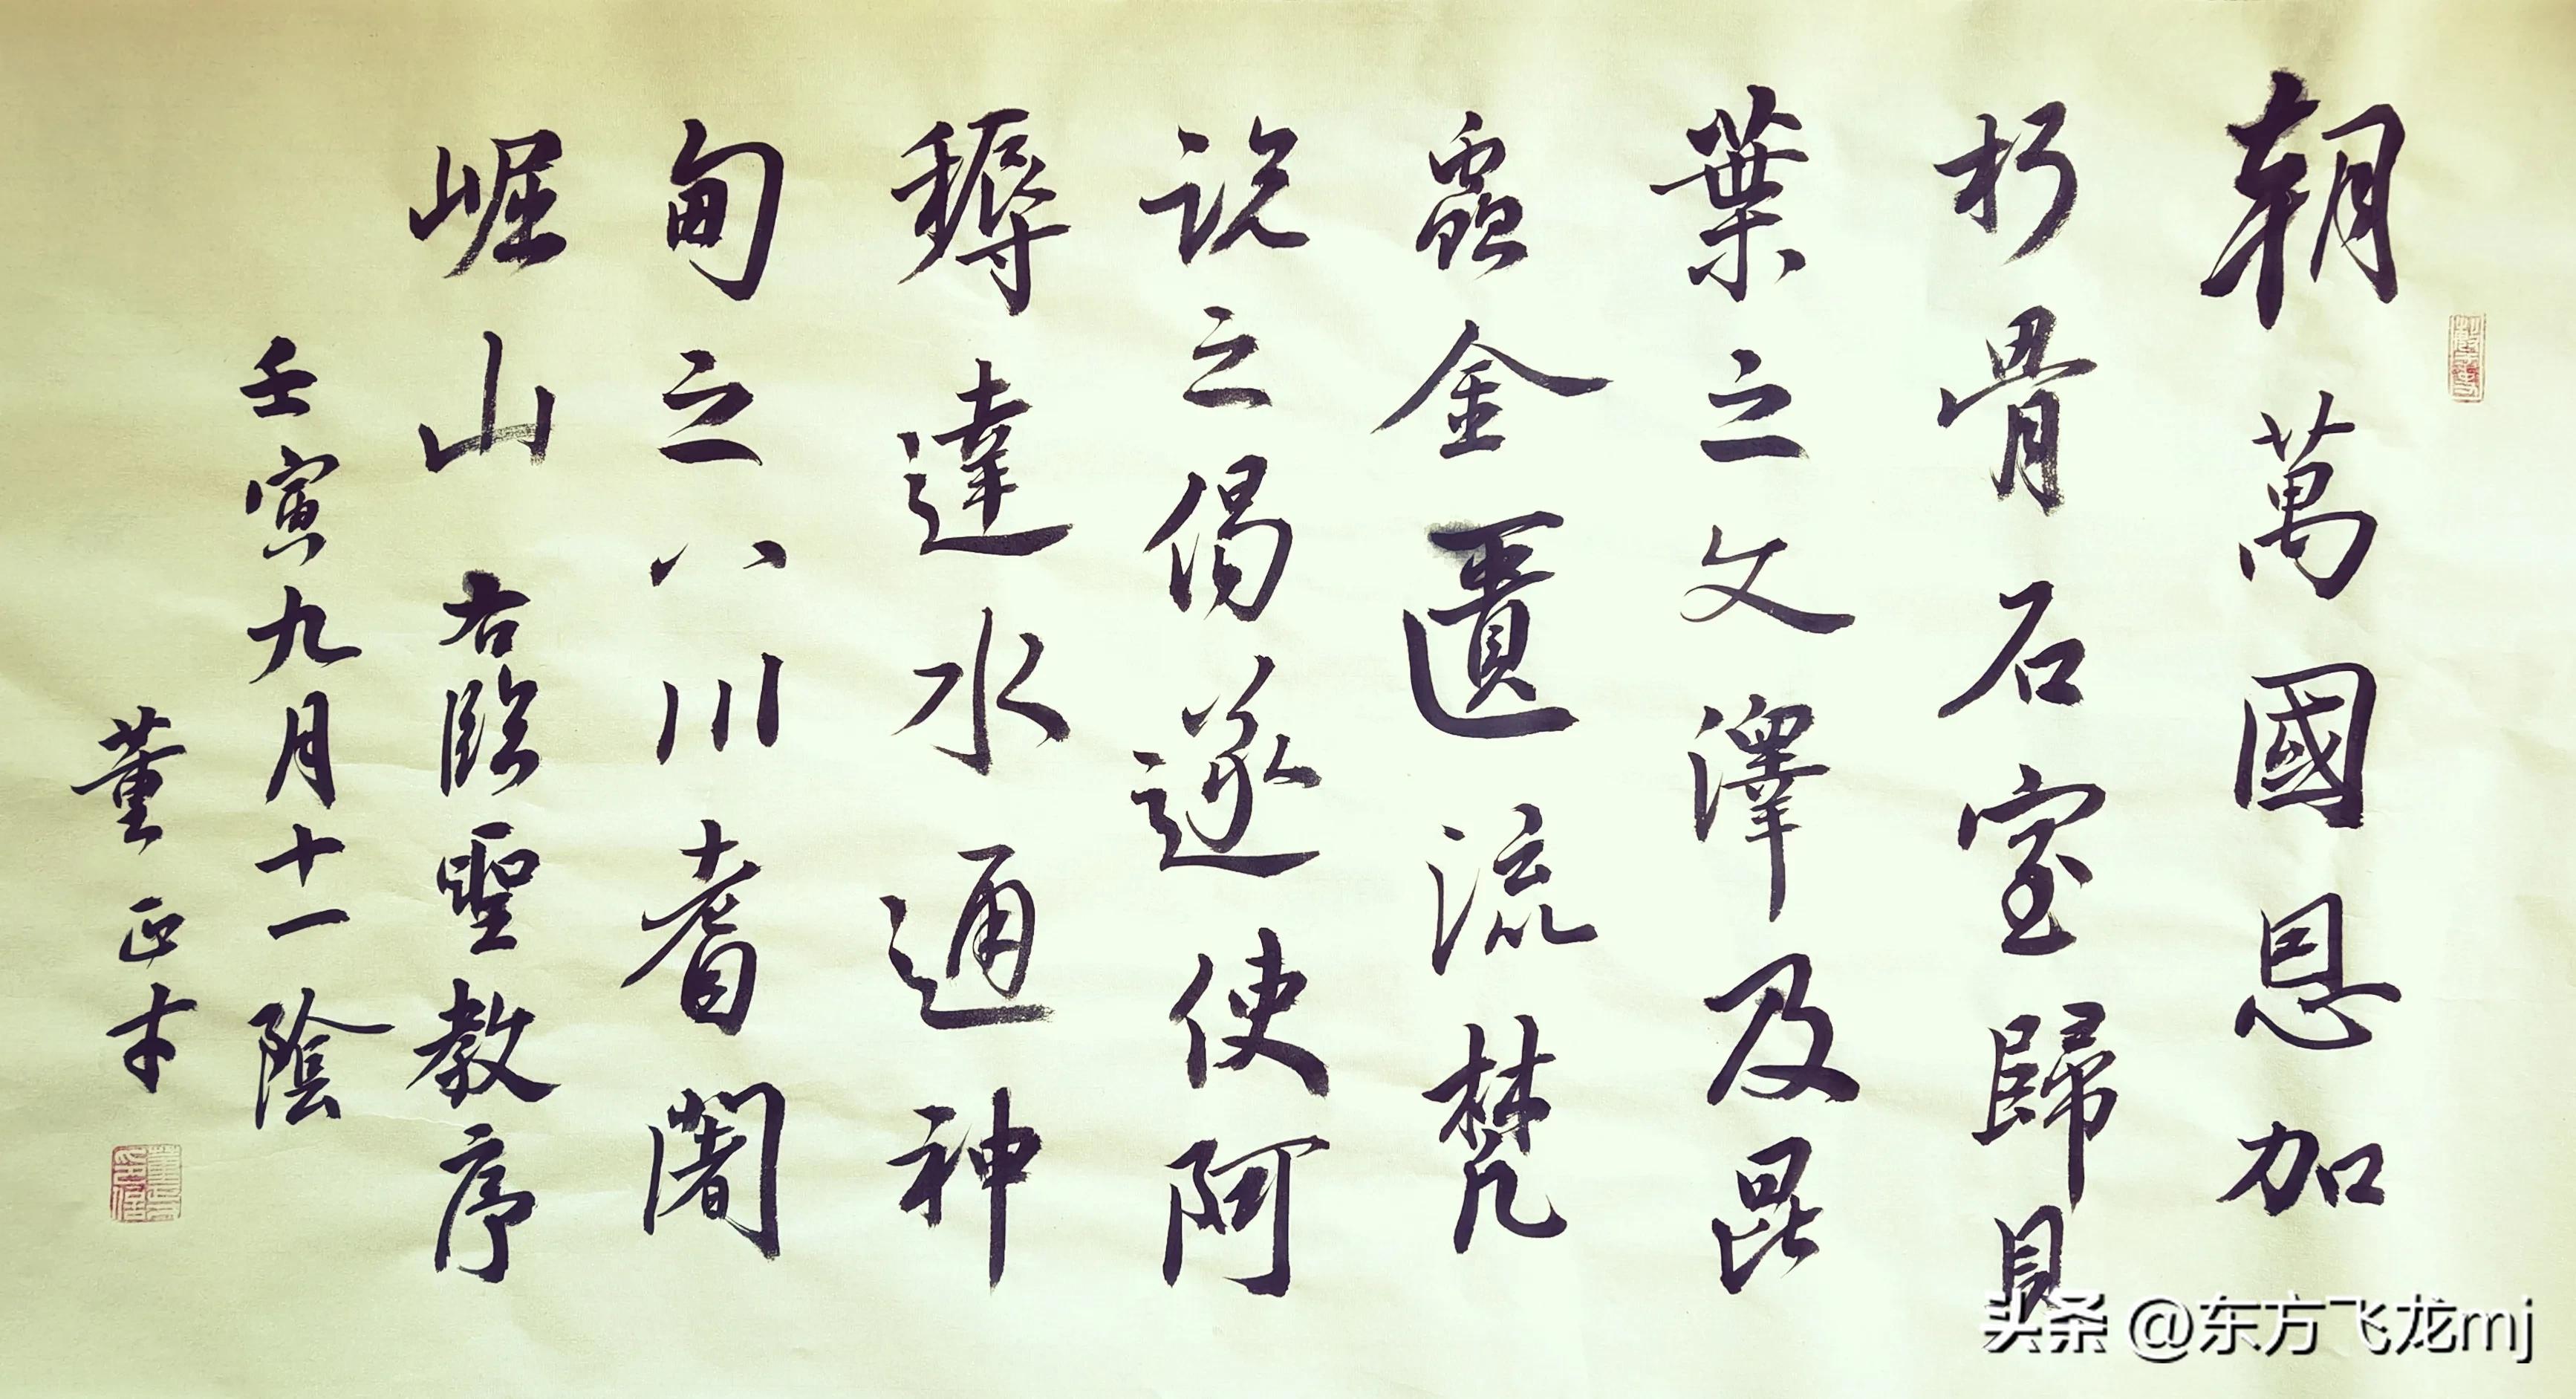 朝萬國恩加
朽骨石室歸貝
葉之文澤及昆
蟲金匱流梵
說之偈遂使阿
耨達水通神
甸之八川耆闍
崛山 右臨聖教序
壬寅九月十一陰
董正
头条 @东方飞龙mj